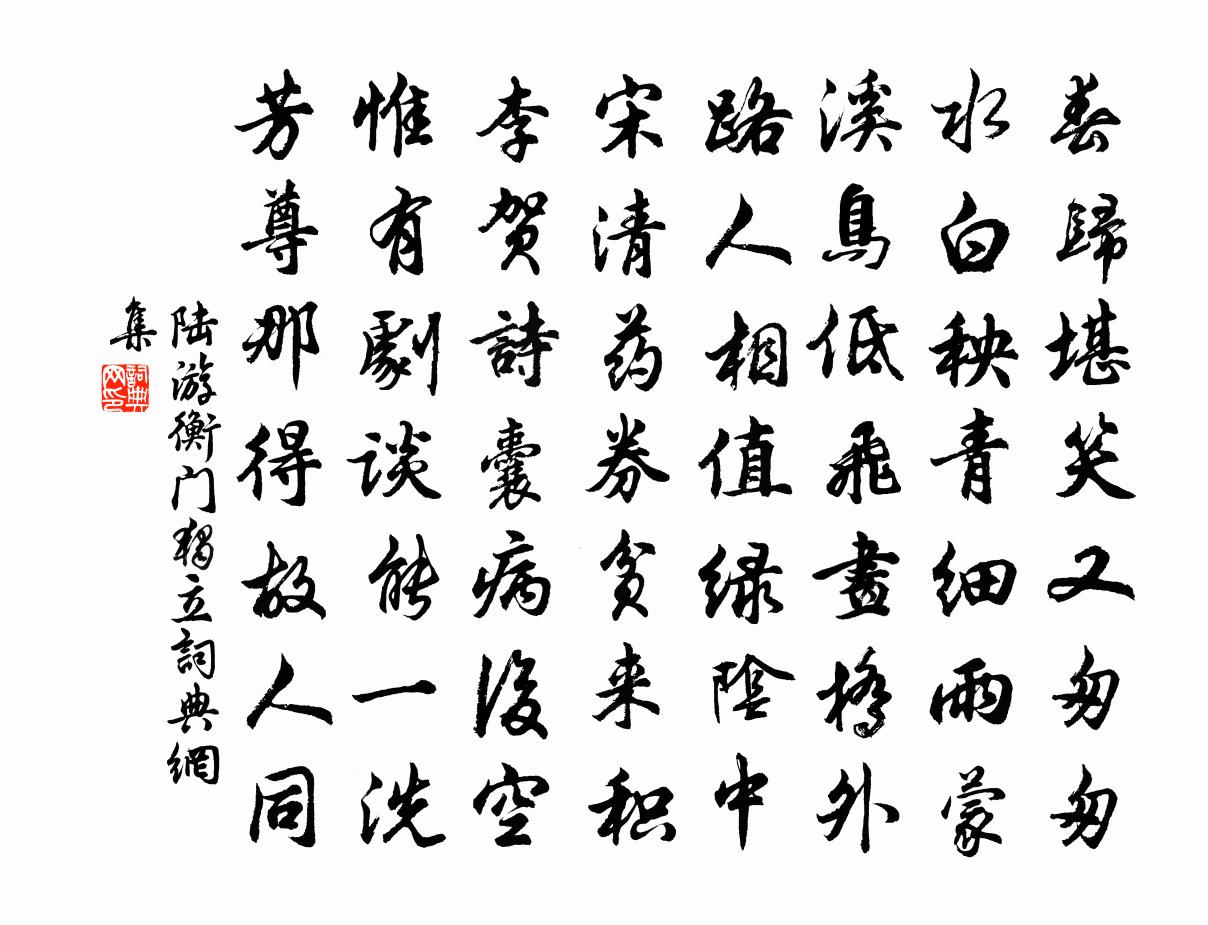 春歸堪笑又匆匆
水白秧青細雨蒙
溪鳥低飛畫橋外
路人相值绿陰中
宋清药券贫来积
李贺詩囊病後空
惟有劇谈能一洗
芳尊那得故人同
陆游衡门獨立詞典網
集
詞典网印